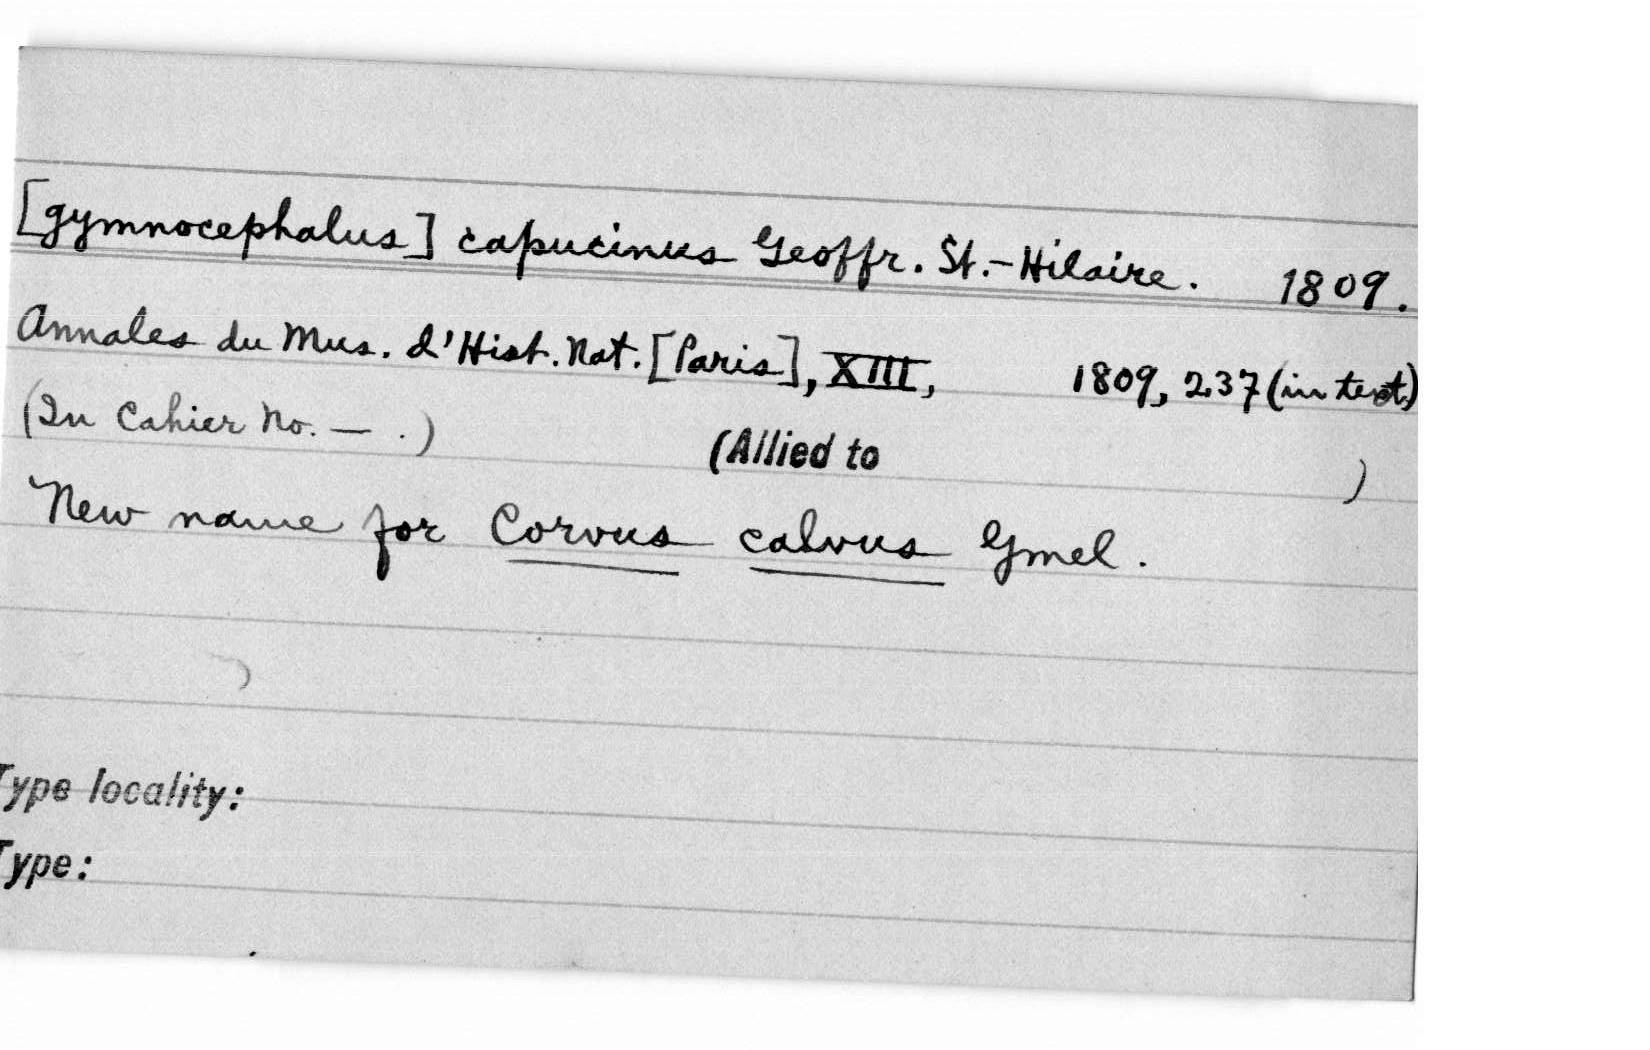 [gymnocephalus] capucinus Geoffr. St.-Hilaire. 1809.
Annales du Mus. d'Hist. Nat. [Paris], XIII, 1809, 237 (in text)
(In Cahier No. — .) (Allied to )
New name for Corvus calvus Gmel.
Type locality:
Type: